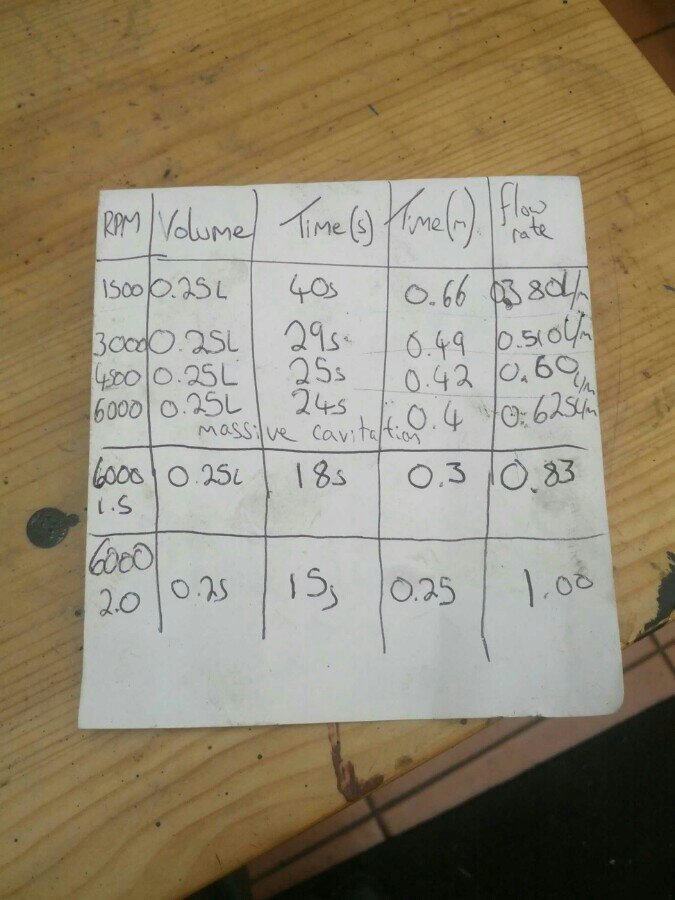 RPM Volume Time(s) Time(m) flow rate
1500 0.25L 40s 0.66 0.380L/m
3000 0.25L 29s 0.49 0.510L/m
4500 0.25L 25s 0.42 0.60 L/m
6000 0.25L 24s 0.4 0.625L/m
massive cavitation
6000 0.25L 18s 0.3 0.83
1.5
6000
2.0 0.25 15s 0.25 1.00